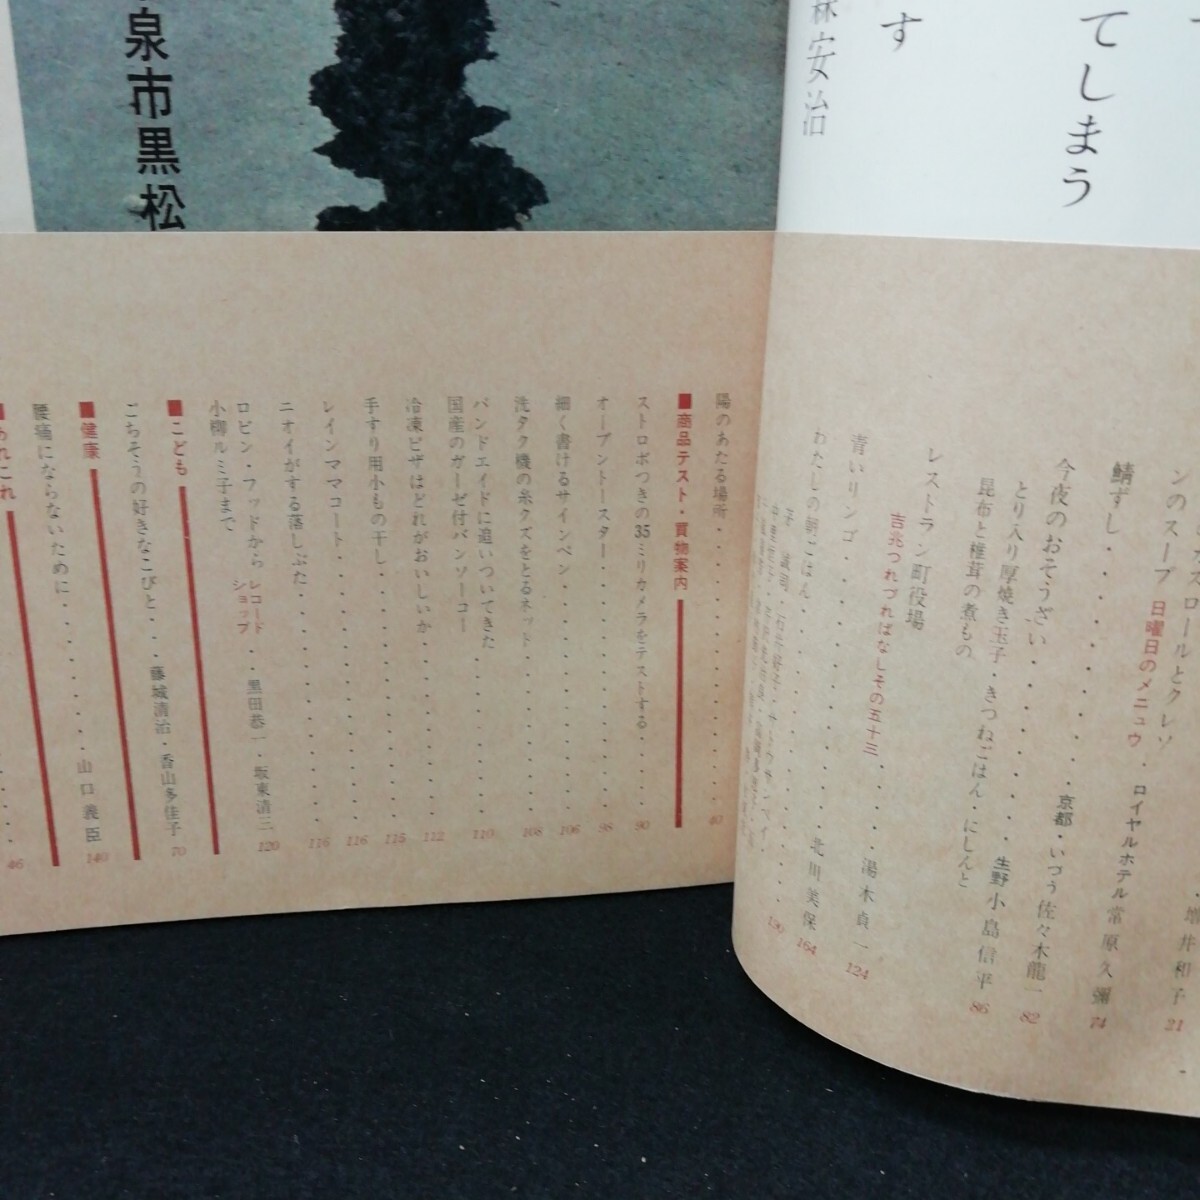 てしまう
す
林安治
泉市黒松
ンのスープ 日曜日のメニュウ
増井和子 21
鯖ずし
ロイヤルホテル 常原久彌 74
今夜のおそうざい
京都・いづう 佐々木龍一 82
とり入り厚焼き玉子・きつねごはん・にしんと
昆布と椎茸の煮もの
生野 小島信平 86
レストラン町役場
吉兆つれづればなしその五十三
湯木貞一 124
青いリンゴ
北川美保 164
わたしの朝ごはん
陽のあたる場所 40
■商品テスト・買物案内
ストロボつきの35ミリカメラをテストする 90
オーブントースター 98
細く書けるサインペン 106
洗タク機の糸クズをとるネット 108
バンドエイドに追いついてきた
国産のガーゼ付バンソーコー 110
冷凍ピザはどれがおいしいか 112
手すり用小もの干し 115
レインママコート 116
ニオイがする落しぶた 116
ロビン・フッドから
小柳ルミ子まで
レコードショップ 黒田恭一・坂東清三 120
■こども
ごちそうの好きなこびと 藤城清治・香山多佳子 70
■健康
腰痛にならないために 山口義臣 140
■あれこれ
46